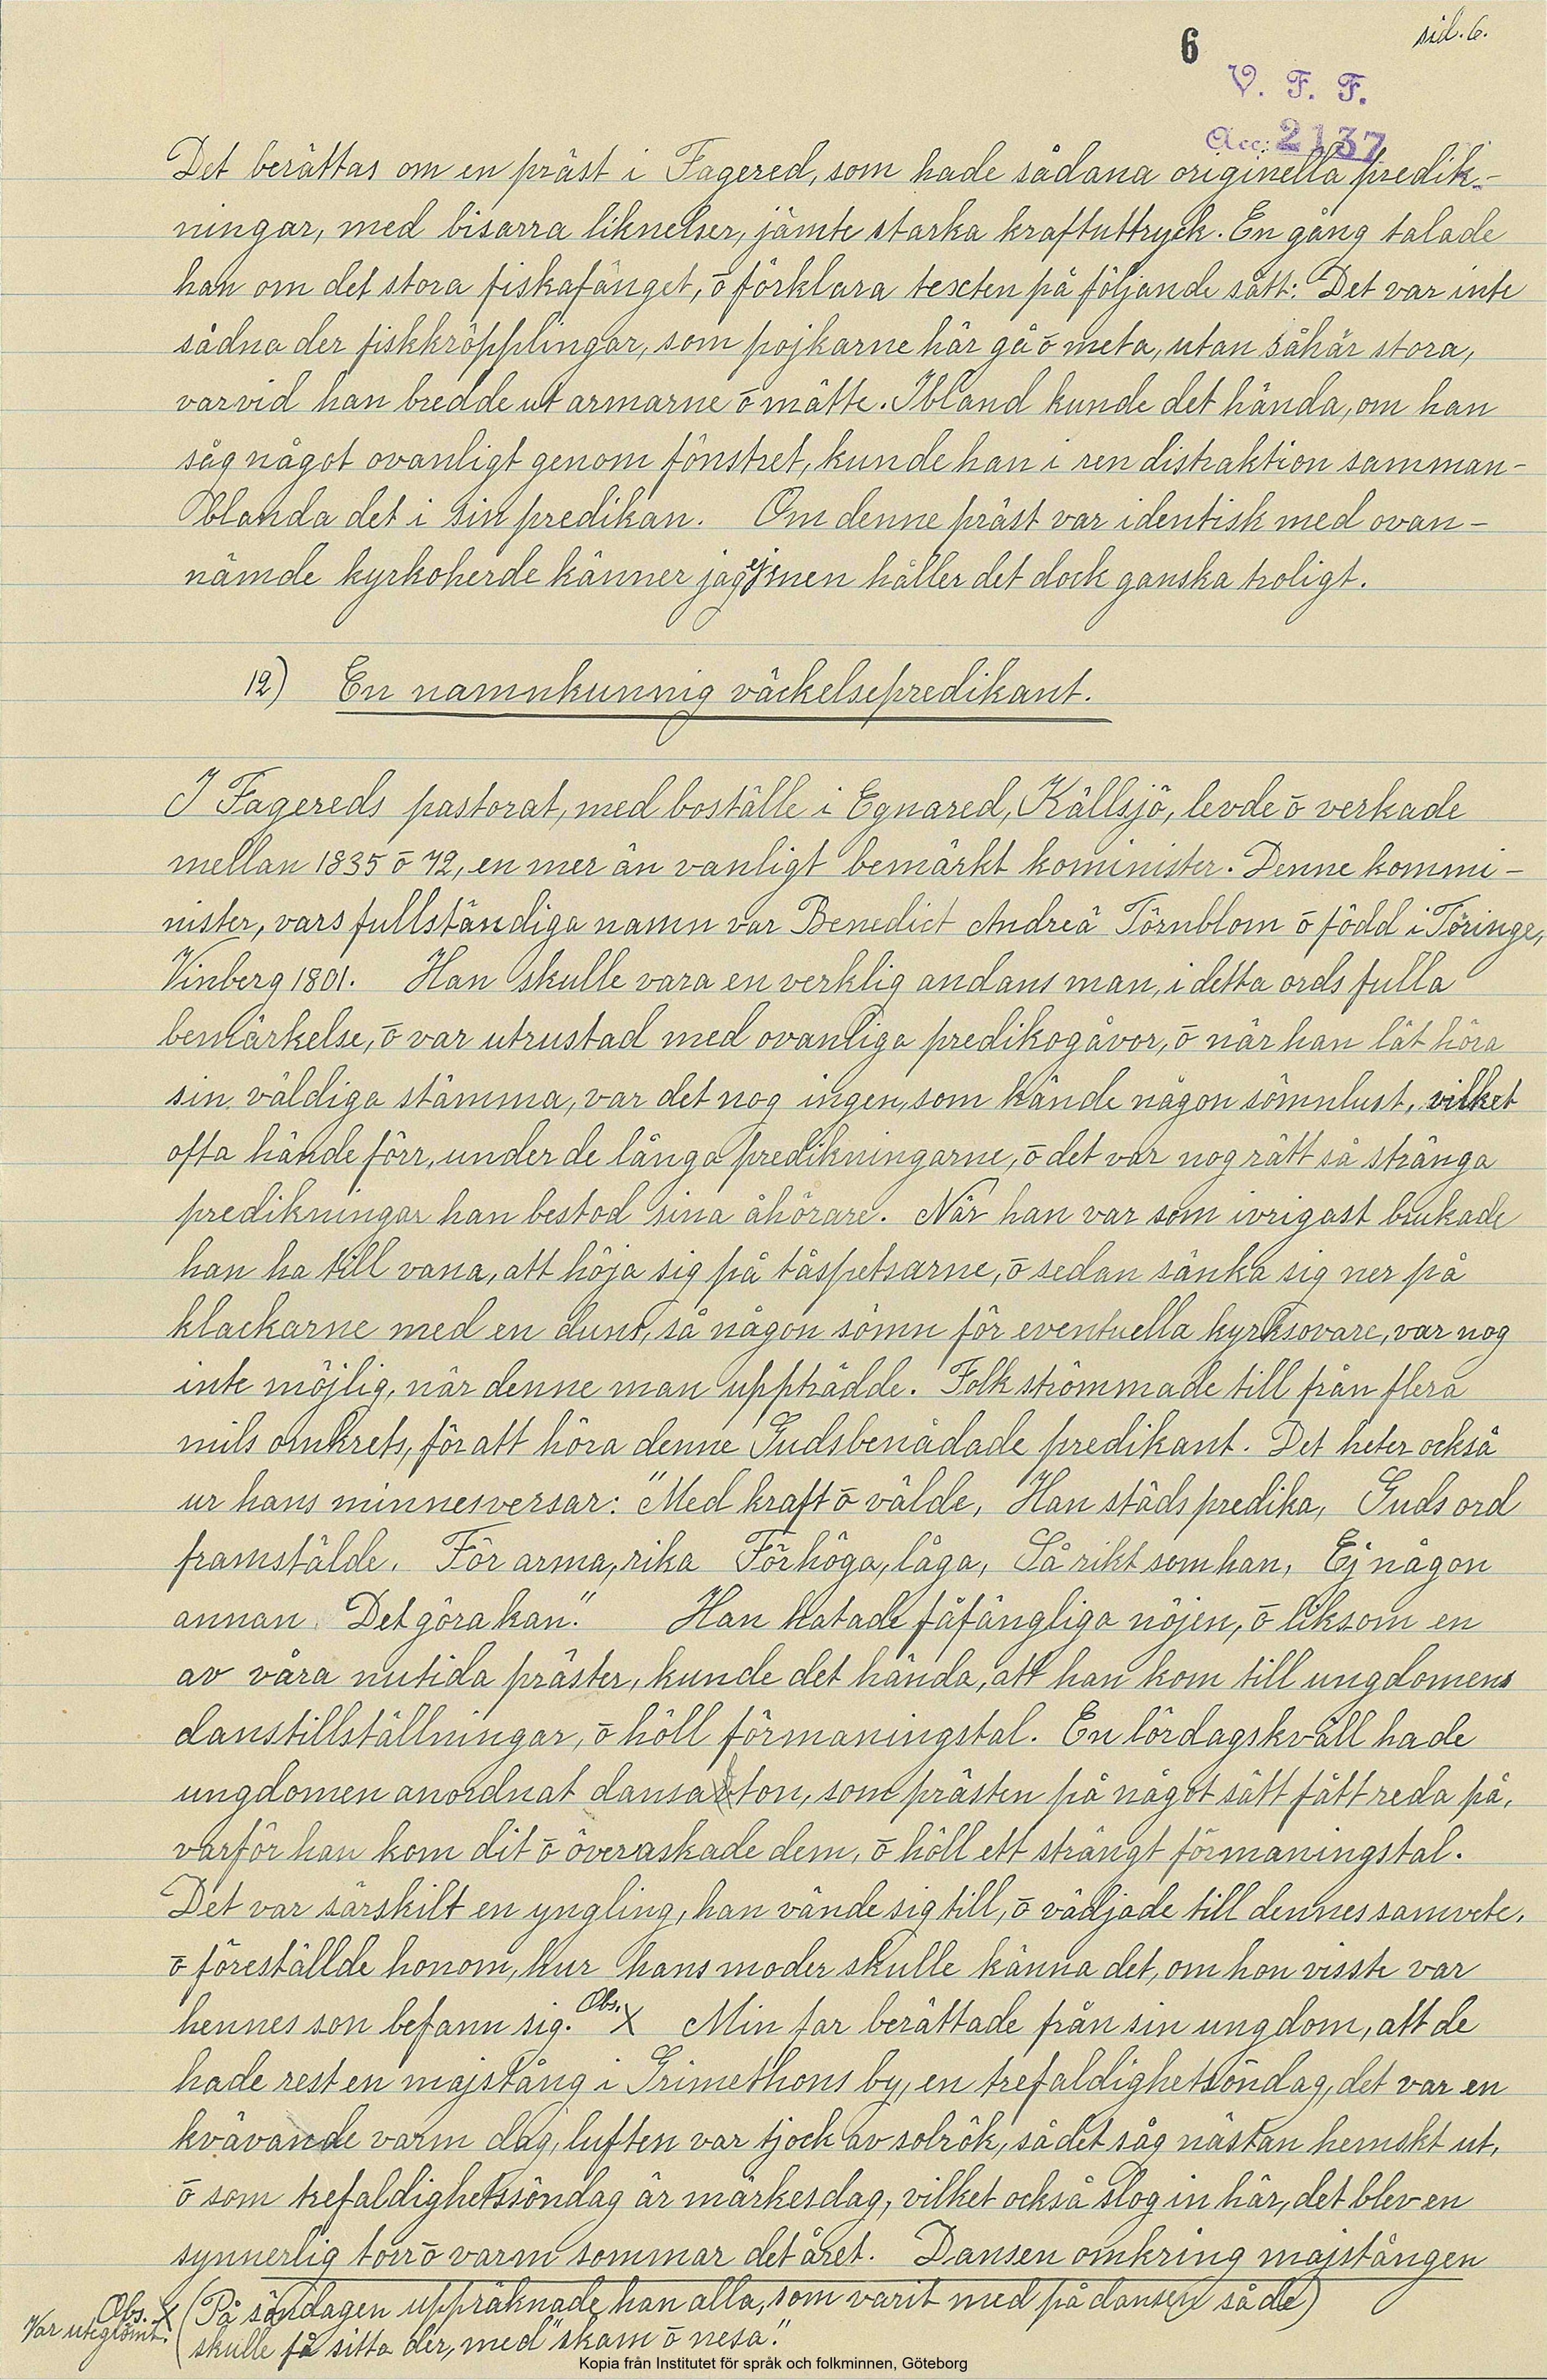 6
sid. 6.
V. F. F.
Acc: 2137
Det berättas om en präst i Fagered, som hade sådana originella predik-
ningar, med bisarra liknelser, jämte starka kraftuttryck. En gång talade
han om det stora fiskafänget, ō förklara texten på följande sätt: Det var inte
sådna der fiskkröpplingar, som pojkarne här gå ō meta, utan såhär stora,
varvid han bredde ut armarne ō mätte. Ibland kunde det hända, om han
såg något ovanligt genom fönstret, kunde han i ren distraktion samman-
blanda det i sin predikan. Om denne präst var identisk med ovan-
nämde kyrkoherde känner jag ej men håller det dock ganska troligt.
12) En namnkunnig väckelsepredikant.
I Fagereds pastorat, med boställe i Egnared, Källsjö, levde ō verkade
mellan 1835 ō 72, en mer än vanligt bemärkt kominister. Denne kommi-
nister, vars fullständiga namn var Benedict Andreä Törnblom ō född i Töringe,
Vinberg 1801. Han skulle vara en verklig andans man, i detta ords fulla
bemärkelse, ō var utrustad med ovanliga predikogåvor, ō när han lät höra
sin väldiga stämma, var det nog ingen, som kände någon sömnlust, vilket
ofta hände förr, under de långa predikningarne, ō det var nog rätt så stränga
predikningar han bestod sina åhörare. När han var som ivrigast brukade
han ha till vana, att höja sig på tåspetsarne, ō sedan sänka sig ner på
klackarne med en duns, så någon sömn för eventuella kyrksovare, var nog
inte möjlig, när denne man uppträdde. Folk strömmade till från flera
mils omkrets, för att höra denne Gudsbenådade predikant. Det heter också
ur hans minnesversar: "Med kraft ō välde, Han städs predika, Guds ord
framstälde. För arma, rika För höga, låga, Så rikt som han, Ej någon
annan Det göra kan." Han hatade fåfängliga nöjen, ō liksom en
av våra nutida präster, kunde det hända, att han kom till ungdomens
danstillställningar, ō höll förmaningstal. En lördagskväll hade
ungdomen anordnat dansafton, som prästen på något sätt fått reda på,
varför han kom dit ō överaskade dem, ō höll ett strängt förmaningstal.
Det var särskilt en yngling, han vände sig till, ō vädjade till dennes samvete,
ō föreställde honom, hur hans moder skulle känna det, om hon visste var
hennes son befann sig. Obs. X Min far berättade från sin ungdom, att de
hade rest en majstång i Grimethons by, en trefaldighetsöndag, det var en
kvävande varm dag, luften var tjock av solrök, så det såg nästan hemskt ut,
ō som trefaldighetssöndag är märkesdag, vilket också slog in här, det blev en
synnerlig torr ō varm sommar det året. Dansen omkring majstången
Obs. X (På söndagen uppräknade han alla, som varit med på dansen så de)
Var uteglömt. (skulle få sitta der, med "skam ō nesa."
Kopia från Institutet för språk och folkminnen, Göteborg